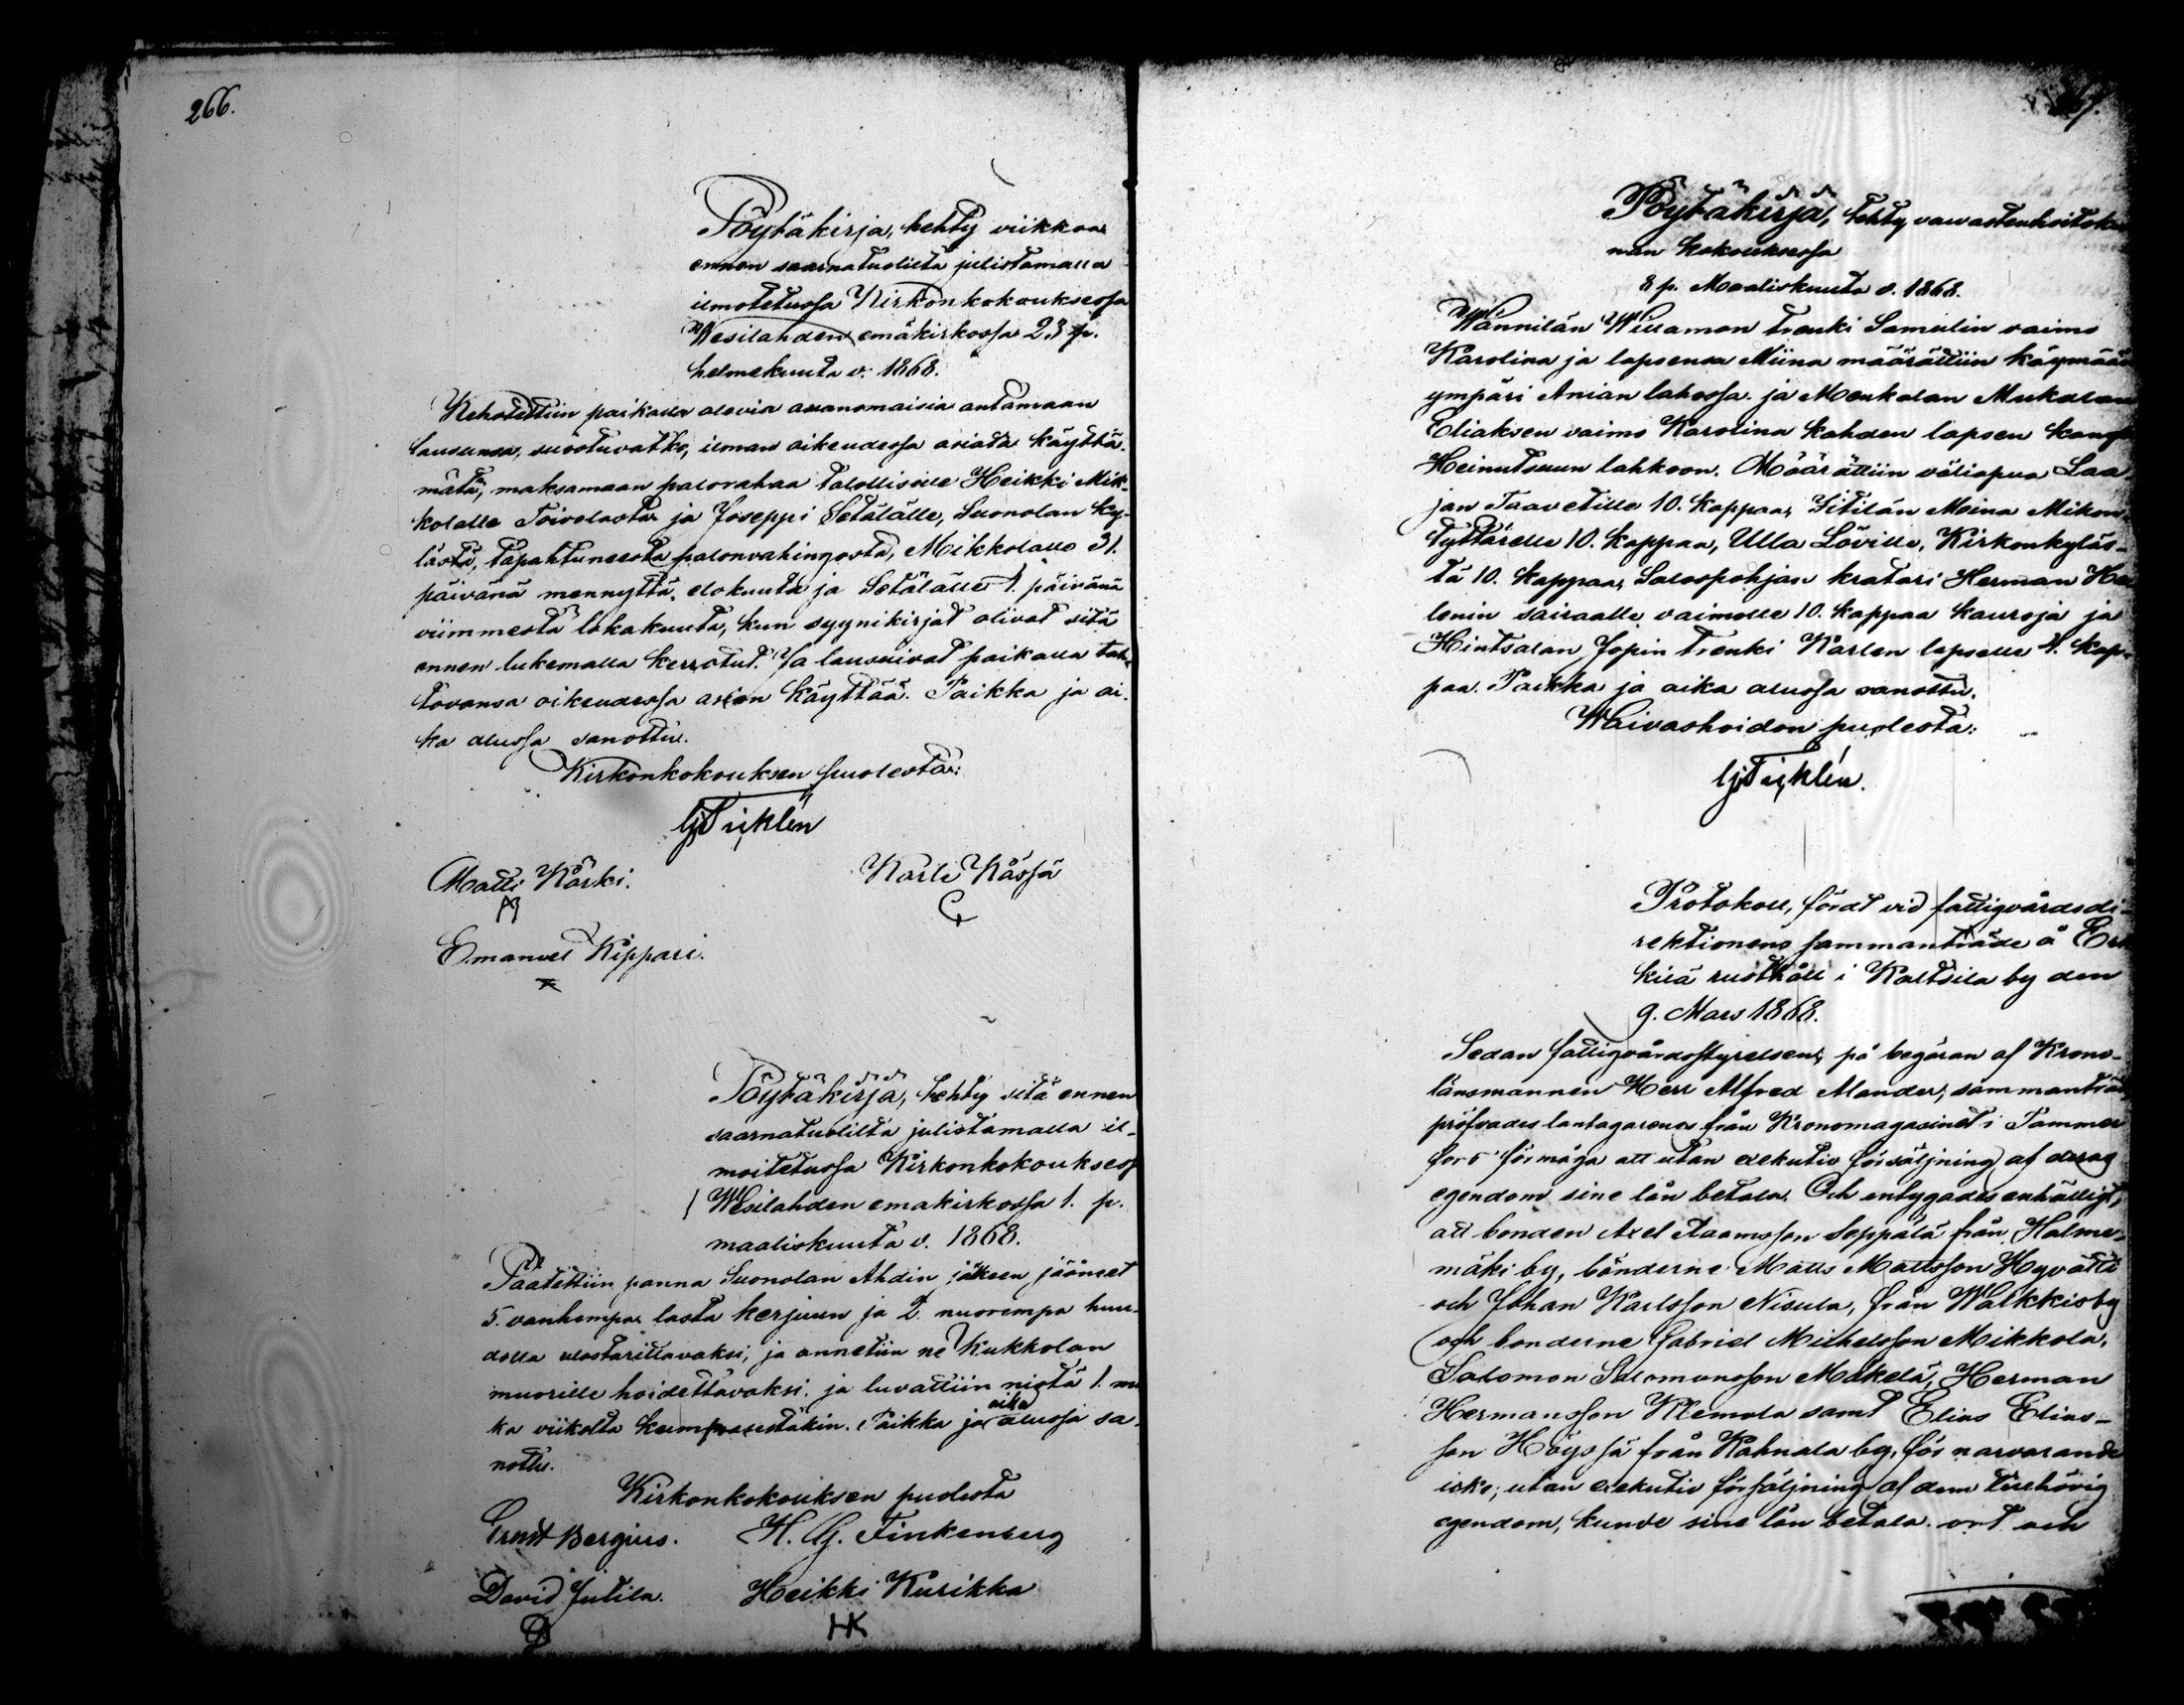 266.
Pöytäkirja, tehty viikkoa
ennen saarnatuolilta julistamalla
ilmotetussa Kirkonkokouksessa
Wesilahden emäkirkossa 23 p.
helmekuuta v. 1868.
Kehotettiin paikalla olevia asianomaisia antamaan
lausunsa, suostuvatko, ilman oikeudessa asiata käyttä-
mätä, maksamaan palorahaa talollisille Heikki Mik-
kolalle Toivolasta ja Joseppi Setälälle, Suonolan ky-
lästä, tapahtuneesta palonvahingosta, Mikkolalle 31.
päivänä mennyttä elokuuta ja Setälälle 1. päivänä
viimmestä lokakuuta, kun syynikirjat olivat sitä
ennen lukemalla kerrotut. Ja lausuivat paikalla tah-
tovansa oikeudessa asian käyttää. Paikka ja ai-
ka alussa sanottu.
Kirkonkokouksen puolesta:
Gj Ticklén
Matti Kärki. Karle Kässä
Emanuel Kippari.
Pöytäkirja, tehty sitä ennen
saarnatuolilta julistamalla il-
moitetussa Kirkonkokouksess
Wesilahden emäkirkossa 1. p.
maaliskuuta v. 1868.
Päätettiin panna Suonolan Ahdin jälkeen jääneet
5. vanhempaa lasta kerjuun ja 2. nuorempa huu-
dolla elostarittavaksi, ja annetiin ne Kukkolan
muorille hoidettavaksi. ja luvattiin niistä 1. mar
ka viikolta kummastakin. Paikka ja aika alussa sa-
nottu.
Kirkonkokouksen puolesta
Ernst Bergius. H. G. Finkenberg
David Jutila. Heikki Kurikka
HK
Pöytäkirja, tehty vaivastenhoitoku
nan kokouksessa
8 p. Maaliskuuta v. 1868.
Wännilän Willamon trenki Samulin vaimo
Karolina ja lapsensa Miina määrättiin käymään
ympäri Anian lahossa. ja Menkalan Mukalan
Eliaksen vaimo Karolina kahden lapsen kansa
Heinutsuun lahkoon. Määrättiin väliapua Laa-
jan Taavetille 10. kappaa, Sitilän Meina Mikon-
tyttärelle 10. kappaa, Ulla Löville, Kirkonkyläs-
tä 10. kappaa, Salospohjan kratari Herman He
lenin sairaalle vaimolle 10. kappaa kauroja ja
Hintsalan Jopin trenki Karlen lapselle 4. kap-
paa. Paikka ja aika alussa sanottu.
Waivashoidon puolesta:
Gj Ticklén.
Protokoll, fördt vid fattigvårdsdi-
rektionens sammanträde å Erk
kilä rusthåll i Kaltsila by den
9. Mars 1868.
Sedan fattigvårdsstyrelsen, på begäran af Krono-
länsmannen Herr Alfred Alander, sammanträdt
pröfvades lantagarenes från Kronomagasinet i Tammer
fors förmåga att utan exekutiv försäljning af deras
egendom sine lån betala. Och intygades enhälligt,
att bonden Axel Adamsson Seppälä från Halme-
mäki by, bönderne Matts Mattsson Hyvätti
och Johan Karlsson Nisula, från Walkkisby
och bonderne Gabriel Michelsson Mikkola,
Salomon Salomonsson Mäkelä, Herman
Hermansson Klemola samt Elias Elias-
son Höyssä från Kahnala by, för narvarande
icke, utan exekutiv försäljning af dem tillhörig
egendom, kunde sine lån betala. ort och